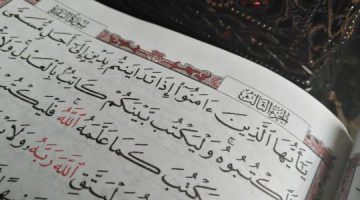 الجزء الثالث
يَٰٓأَيُّهَا ٱلَّذِينَ ءَامَنُوٓا۟ إِذَا تَدَايَنتُم بِدَيْنٍ إِلَىٰٓ أَجَلٍ مُّسَمًّى
فَٱكْتُبُوهُ وَلْيَكْتُب بَّيْنَكُمْ كَاتِبٌۢ بِٱلْعَدْلِ وَلَا
يَكْتُبَ كَمَا عَلَّمَهُ ٱللَّهُ فَلْيَكْتُبْ
وَلْيَتَّقِ ٱللَّهَ رَبَّهُۥ وَلَا